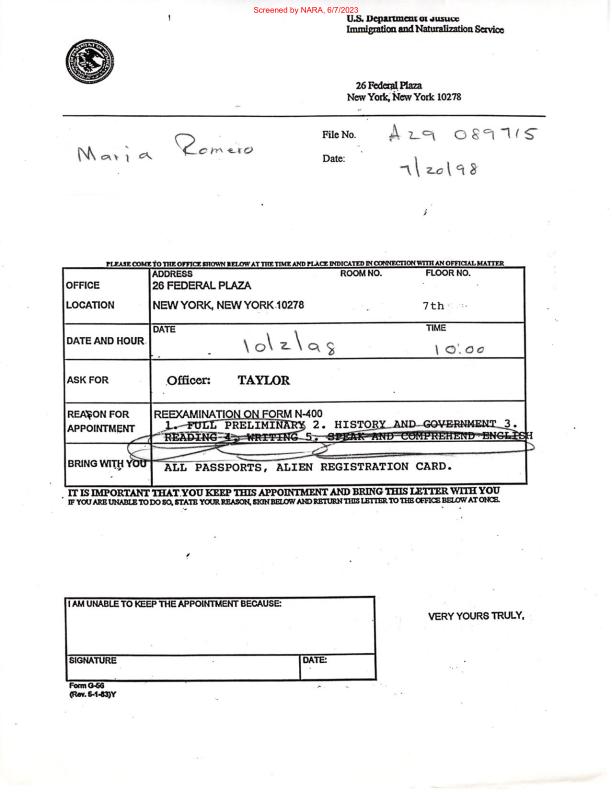 Screened by NARA, 6/7/2023
U.S. Department of Justice
Immigration and Naturalization Service
26 Federal Plaza
New York, New York 10278
Maria Romero
File No. A29 089715
Date: 7/20/98
PLEASE COME TO THE OFFICE SHOWN BELOW AT THE TIME AND PLACE INDICATED IN CONNECTION WITH AN OFFICIAL MATTER
OFFICE LOCATION
ADDRESS ROOM NO. FLOOR NO.
26 FEDERAL PLAZA
NEW YORK, NEW YORK 10278 7th
DATE AND HOUR
DATE TIME
10/2/98 10:00
ASK FOR Officer: TAYLOR
REASON FOR APPOINTMENT
REEXAMINATION ON FORM N-400
1. FULL PRELIMINARY 2. HISTORY AND GOVERNMENT 3.
READING 4. WRITING 5. SPEAK AND COMPREHEND ENGLISH
BRING WITH YOU ALL PASSPORTS, ALIEN REGISTRATION CARD.
IT IS IMPORTANT THAT YOU KEEP THIS APPOINTMENT AND BRING THIS LETTER WITH YOU
IF YOU ARE UNABLE TO DO SO, STATE YOUR REASON, SIGN BELOW AND RETURN THIS LETTER TO THE OFFICE BELOW AT ONCE.
I AM UNABLE TO KEEP THE APPOINTMENT BECAUSE:
VERY YOURS TRULY,
SIGNATURE DATE:
Form G-56
(Rev. 5-1-83)Y